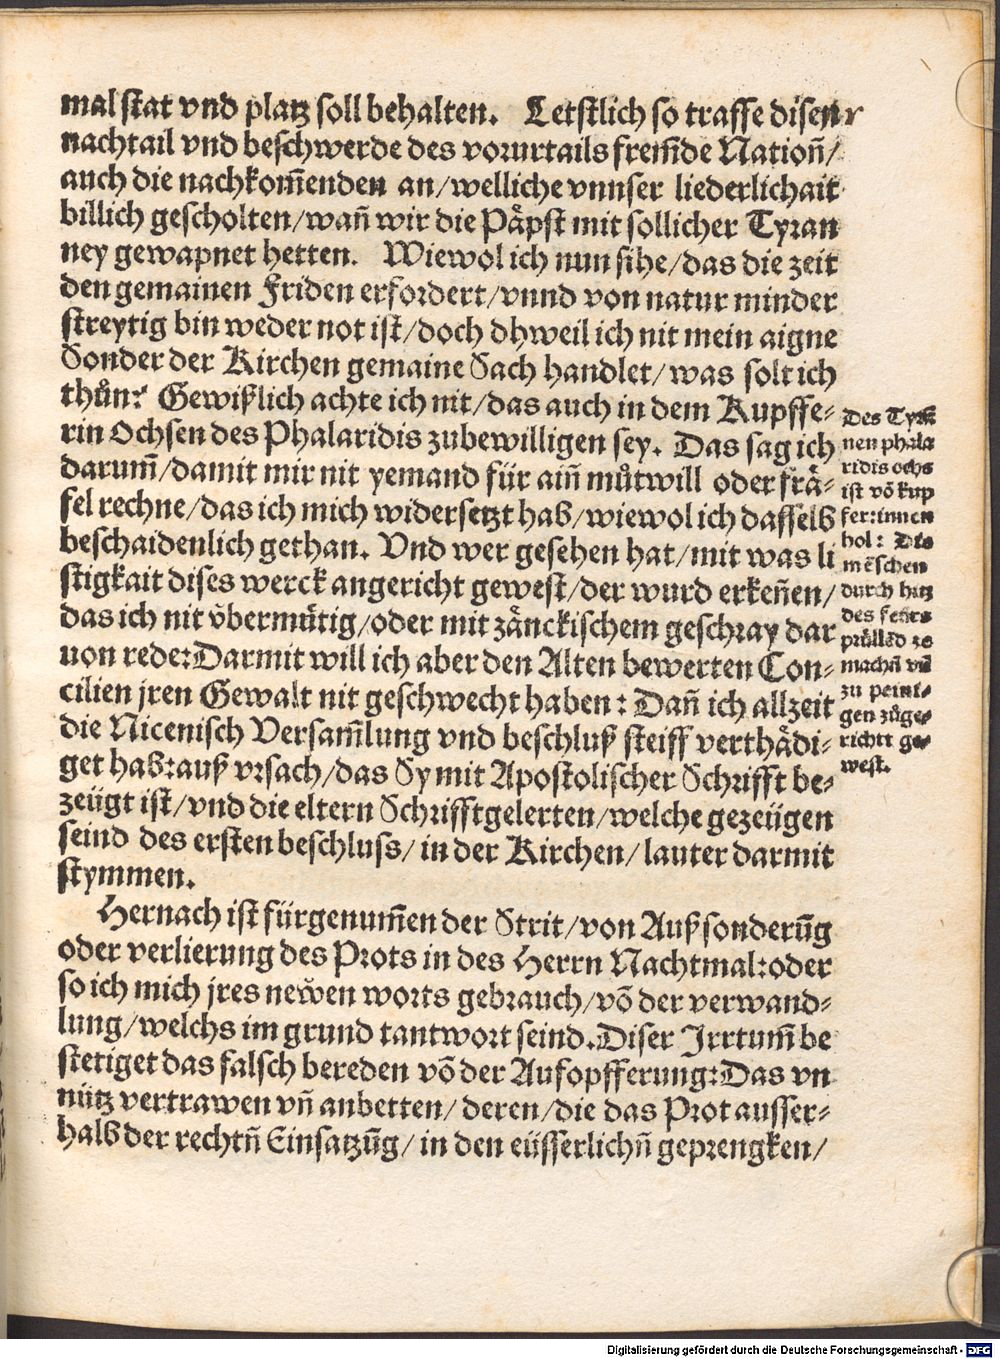 mal stat vnd platz soll behalten. Letstlich so traffe disen r
nachtail vnd beschwerde des vorurtails frem̃de Nation̄/
auch die nachkom̃enden an/welliche vnnser liederlichait
billich gescholten/wan̄ wir die Pa̋pst mit sollicher Tyran
ney gewapnet hetten. Wiewol ich nun sihe/das die zeit
den gemainen Friden erfordert/vnnd von natur minder
streytig bin weder not ist/doch dhweil ich nit mein aigne
Sonder der Kirchen gemaine Sach handlet/was solt ich
thůn? Gewißlich achte ich nit/das auch in dem Kupffe-
rin Ochsen des Phalaridis zubewilligen sey. Das sag ich
darum̃/damit mir nit yemand für ain̄ můtwill oder frä-
fel rechne/das ich mich widersetzt hab/wiewol ich dasselb
beschaidenlich gethan. Vnd wer gesehen hat/mit was li
stigkait dises werck angericht gewest/der wurd erken̄en/
das ich nit v̈bermütig/oder mit zänckischem geschray dar
uon rede:Darmit will ich aber den Alten bewerten Con-
cilien jren Gewalt nit geschwecht haben: Dan̄ ich allzeit
die Nicenisch Versam̃lung vnd beschluß steiff verthädi-
get hab:auß vrsach/das Sy mit Apostolischer Schrifft be-
zeügt ist/vnd die eltern Schrifftgelerten/welche gezeügen
seind des ersten beschluss/in der Kirchen/lauter darmit
stymmen.
Hernach ist fürgenum̃en der Strit/von Außsonderūg
oder verlierung des Prots in des Herrn Nachtmal:oder
so ich mich jres newen worts gebrauch/vō der verwand-
lung/welchs im grund tantwort seind. Diser Irrtum̃ be
stetiget das falsch bereden vō der Aufopfferung:Das vn
nütz vertrawen vn̄ anbetten/deren/die das Prot ausser-
halb der rechtn̄ Einsatzūg/in den eüsserlichn̄ geprengken/
Des Tyrā
nen phala
ridis ochs
ist vō kup
fer:innen
hol: Die
mēschen
durch hitz
des feürs
prüllēd ze
machn̄ vn̄
zu peini-
gen zůge-
richt ge-
west.
Digitalisierung gefördert durch die Deutsche Forschungsgemeinschaft - DFG